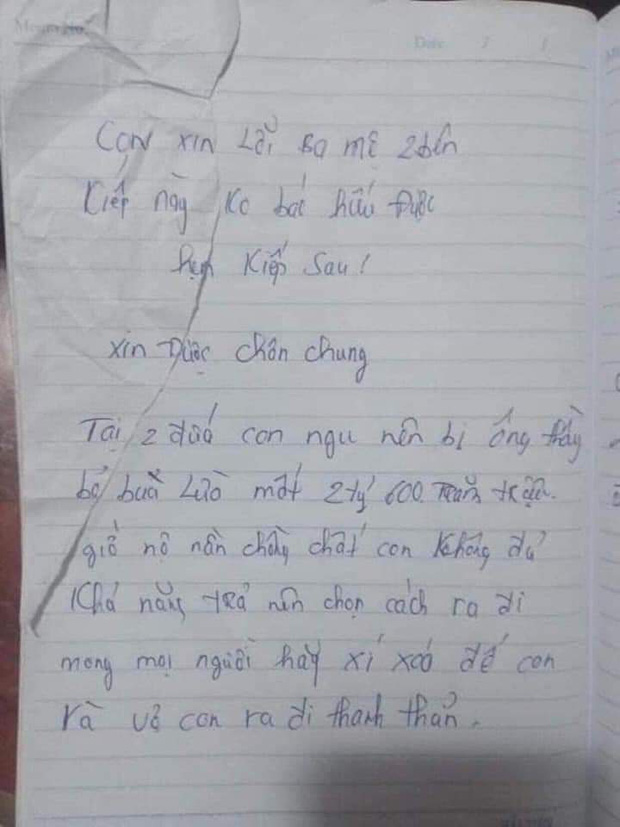 Date / /
Con xin Lỗi Ba mẹ 2 bên
Kiếp này Ko báo hiếu Được
hẹn Kiếp Sau!
xin Được chôn chung
Tại 2 đứa con ngu nên bị ông thầy
bỏ buà Lừa mất 2 tỷ 600 Trăm triệu.
giờ nợ nần chồng chất con không đủ
Khả năng trả nên chọn cách ra đi
mong mọi người hãy xí xoá để con
và vợ con ra đi thanh thản.